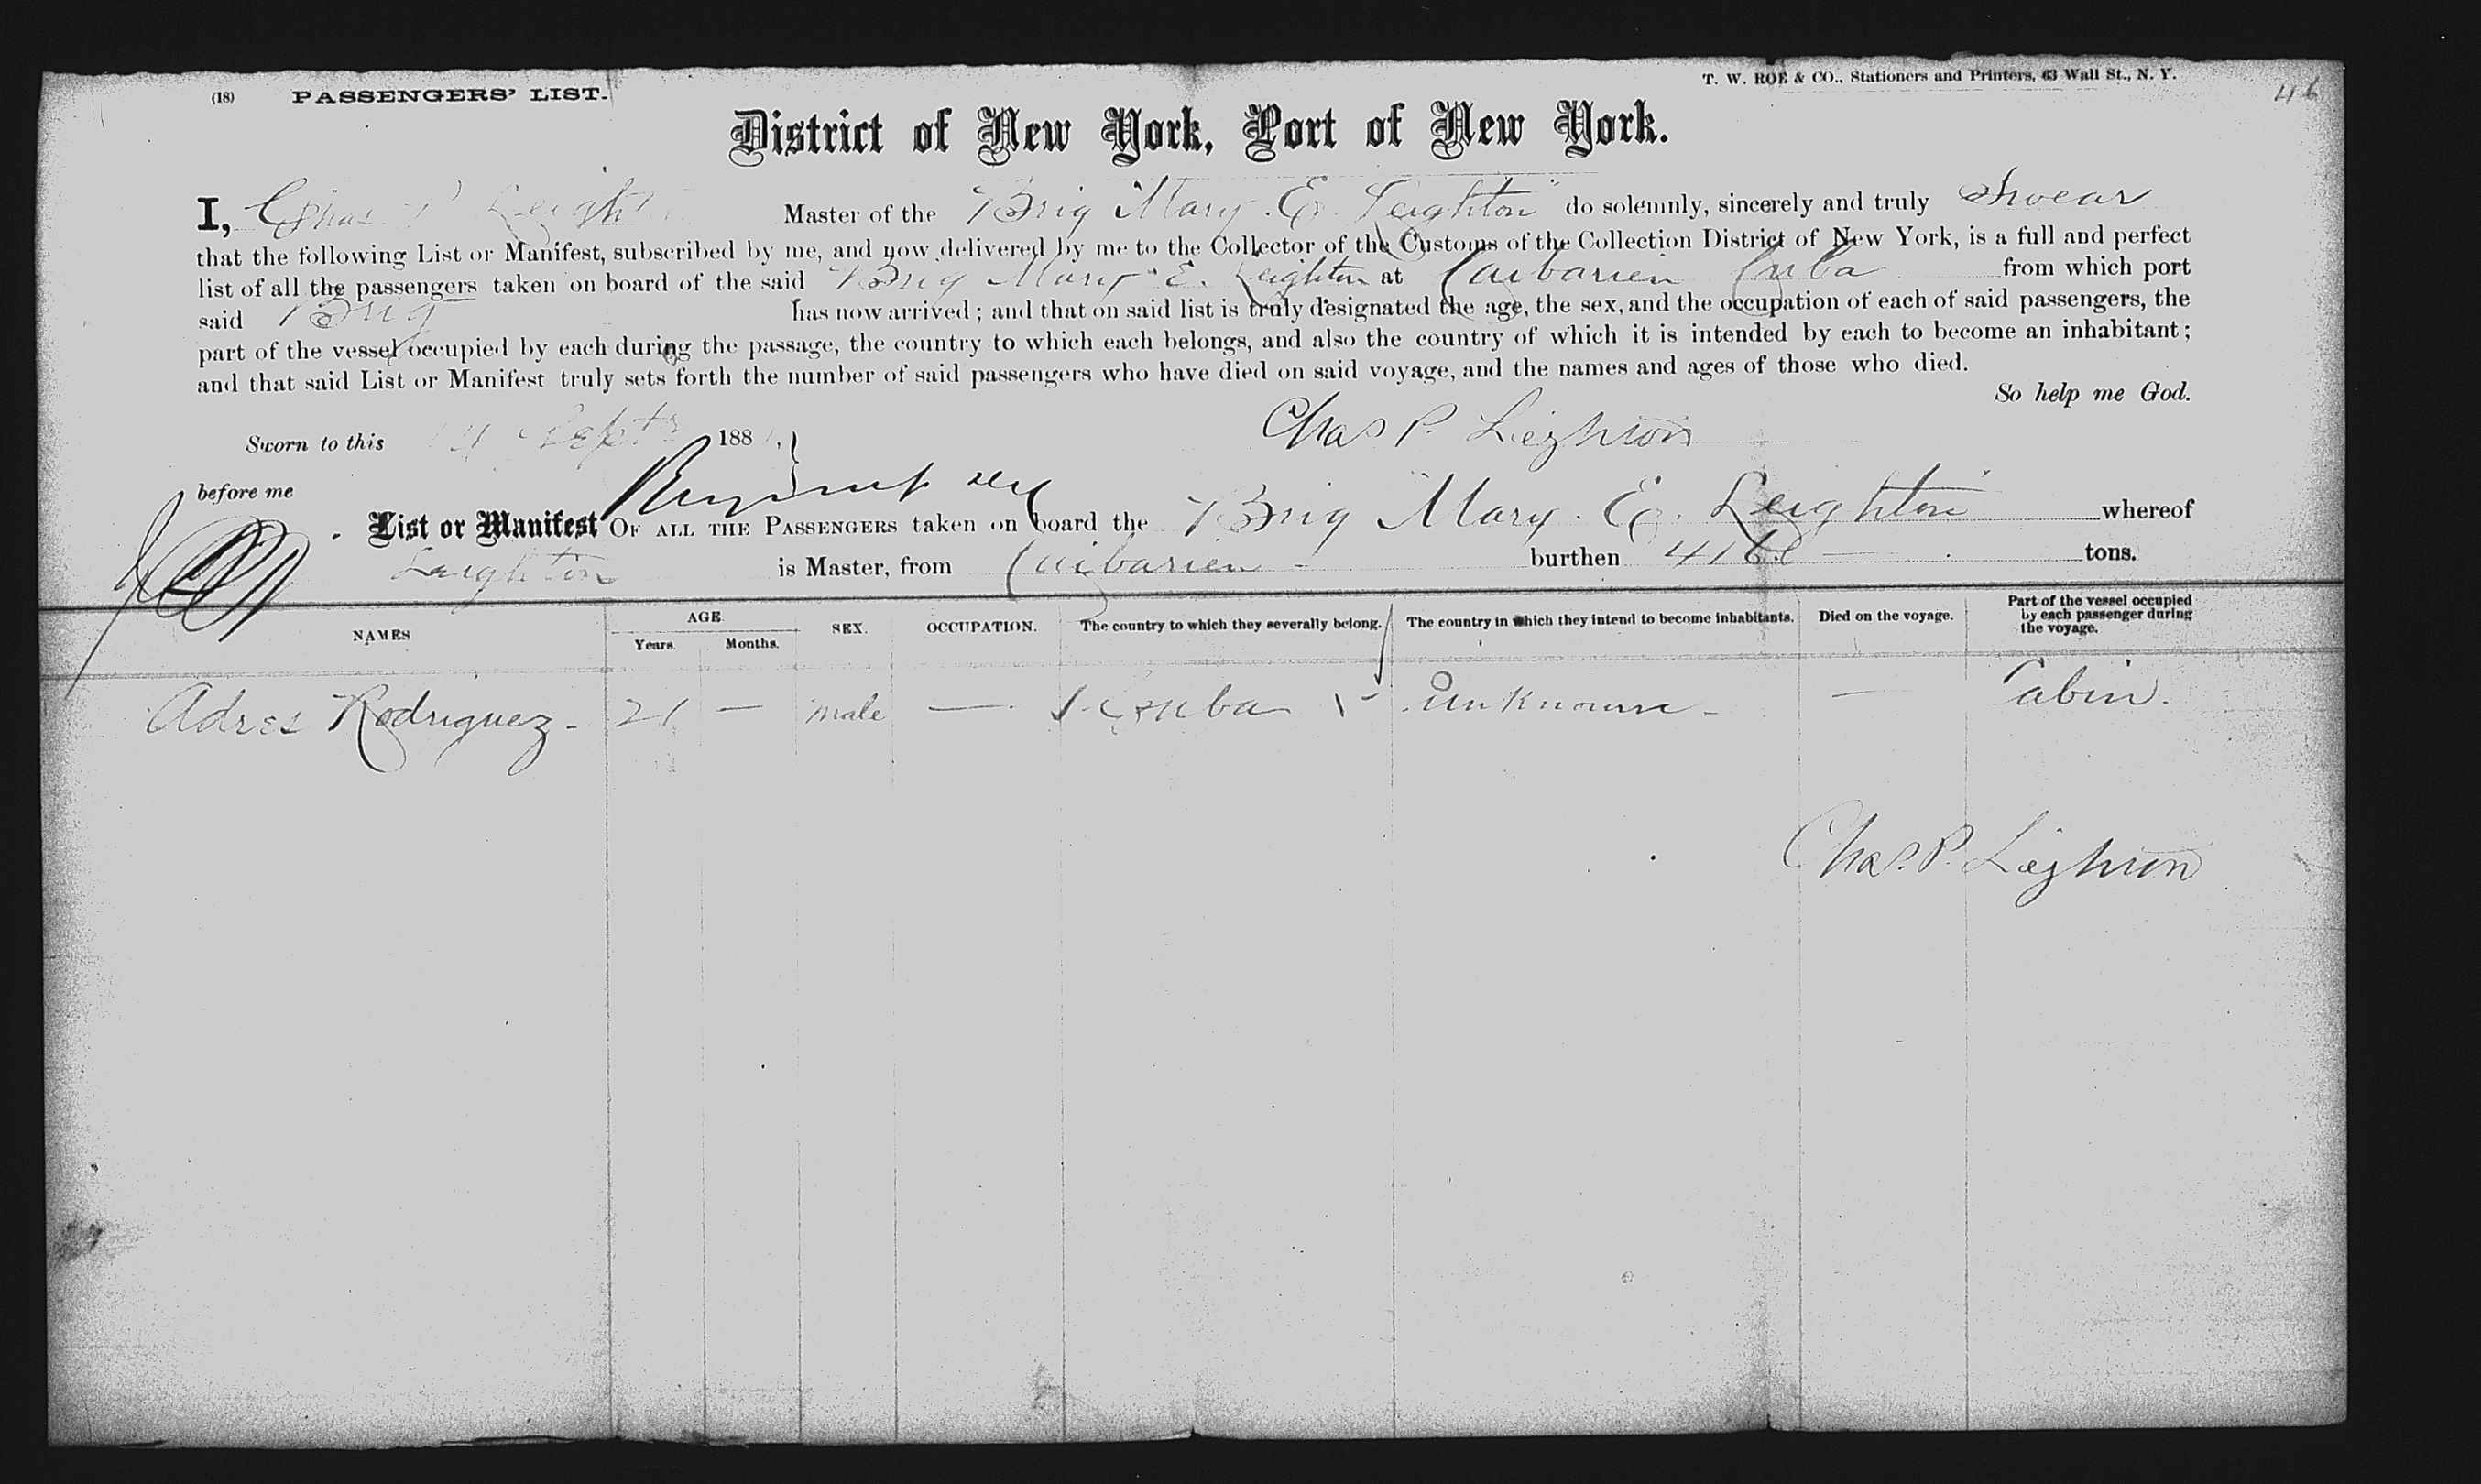 (18) PASSENGERS' LIST. T. W. ROE & CO., Stationers and Printers, 63 Wall St., N. Y. 46
District of New York, Port of New York.
I, Chas P Leighton Master of the Brig Mary. E. Leighton do solemnly, sincerely and truly Swear
that the following List or Manifest, subscribed by me, and now delivered by me to the Collector of the Customs of the Collection District of New York, is a full and perfect
list of all the passengers taken on board of the said Brig Mary E. Leighton at Caibarien Cuba from which port
said Brig has now arrived; and that on said list is truly designated the age, the sex, and the occupation of each of said passengers, the
part of the vessel occupied by each during the passage, the country to which each belongs, and also the country of which it is intended by each to become an inhabitant;
and that said List or Manifest truly sets forth the number of said passengers who have died on said voyage, and the names and ages of those who died.
So help me God.
Sworn to this Sept 188 Chas P. Leighton
before me
List or Manifest OF ALL THE PASSENGERS taken on board the Brig Mary. E. Leighton whereof
Leighton is Master, from Caibarien - burthen tons.
NAMES AGE. Years. Months. SEX. OCCUPATION. The country to which they severally belong. The country in which they intend to become inhabitants. Died on the voyage. Part of the vessel occupied by each passenger during the voyage.
Adres Rodriguez - 21 — male — Cuba unknown - — Cabin.
Chas. P. Leighton